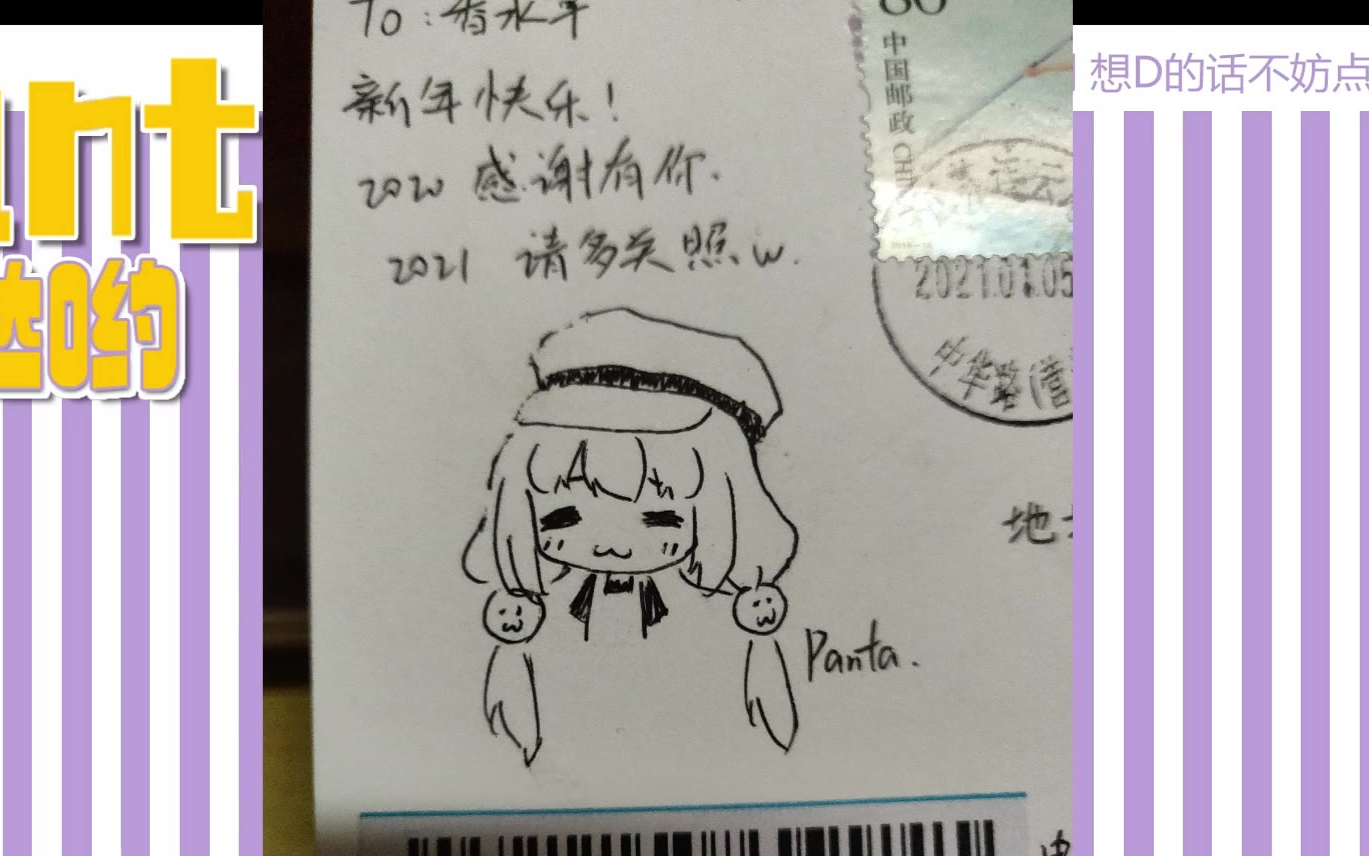 To:香水军
新年快乐!
2020 感谢有你.
2021 请多关照w.
Panta.
80
中国邮政 CHI
2021.01.05
中华路(营
地
ant
哟
想D的话不妨点